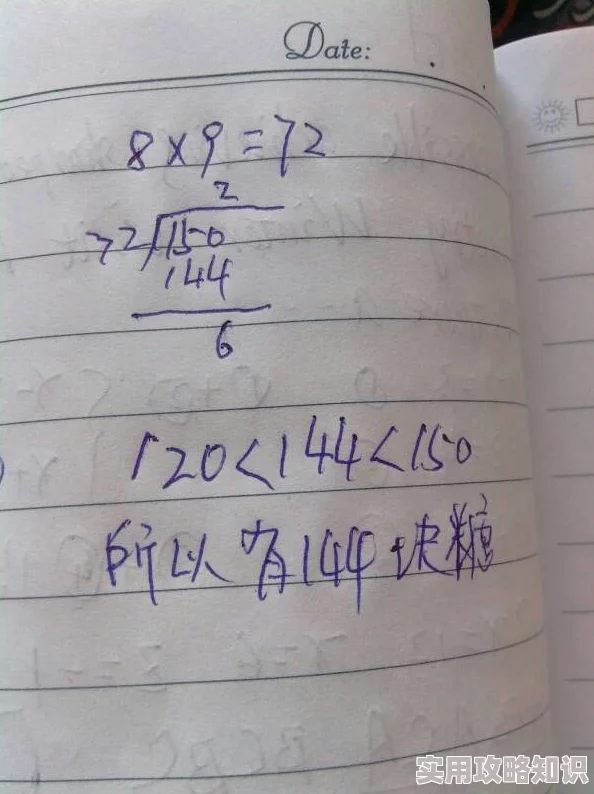 Date:
8×9=72
2
72√150
144
6
120<144<150
所以有144块糖
实用攻略知识